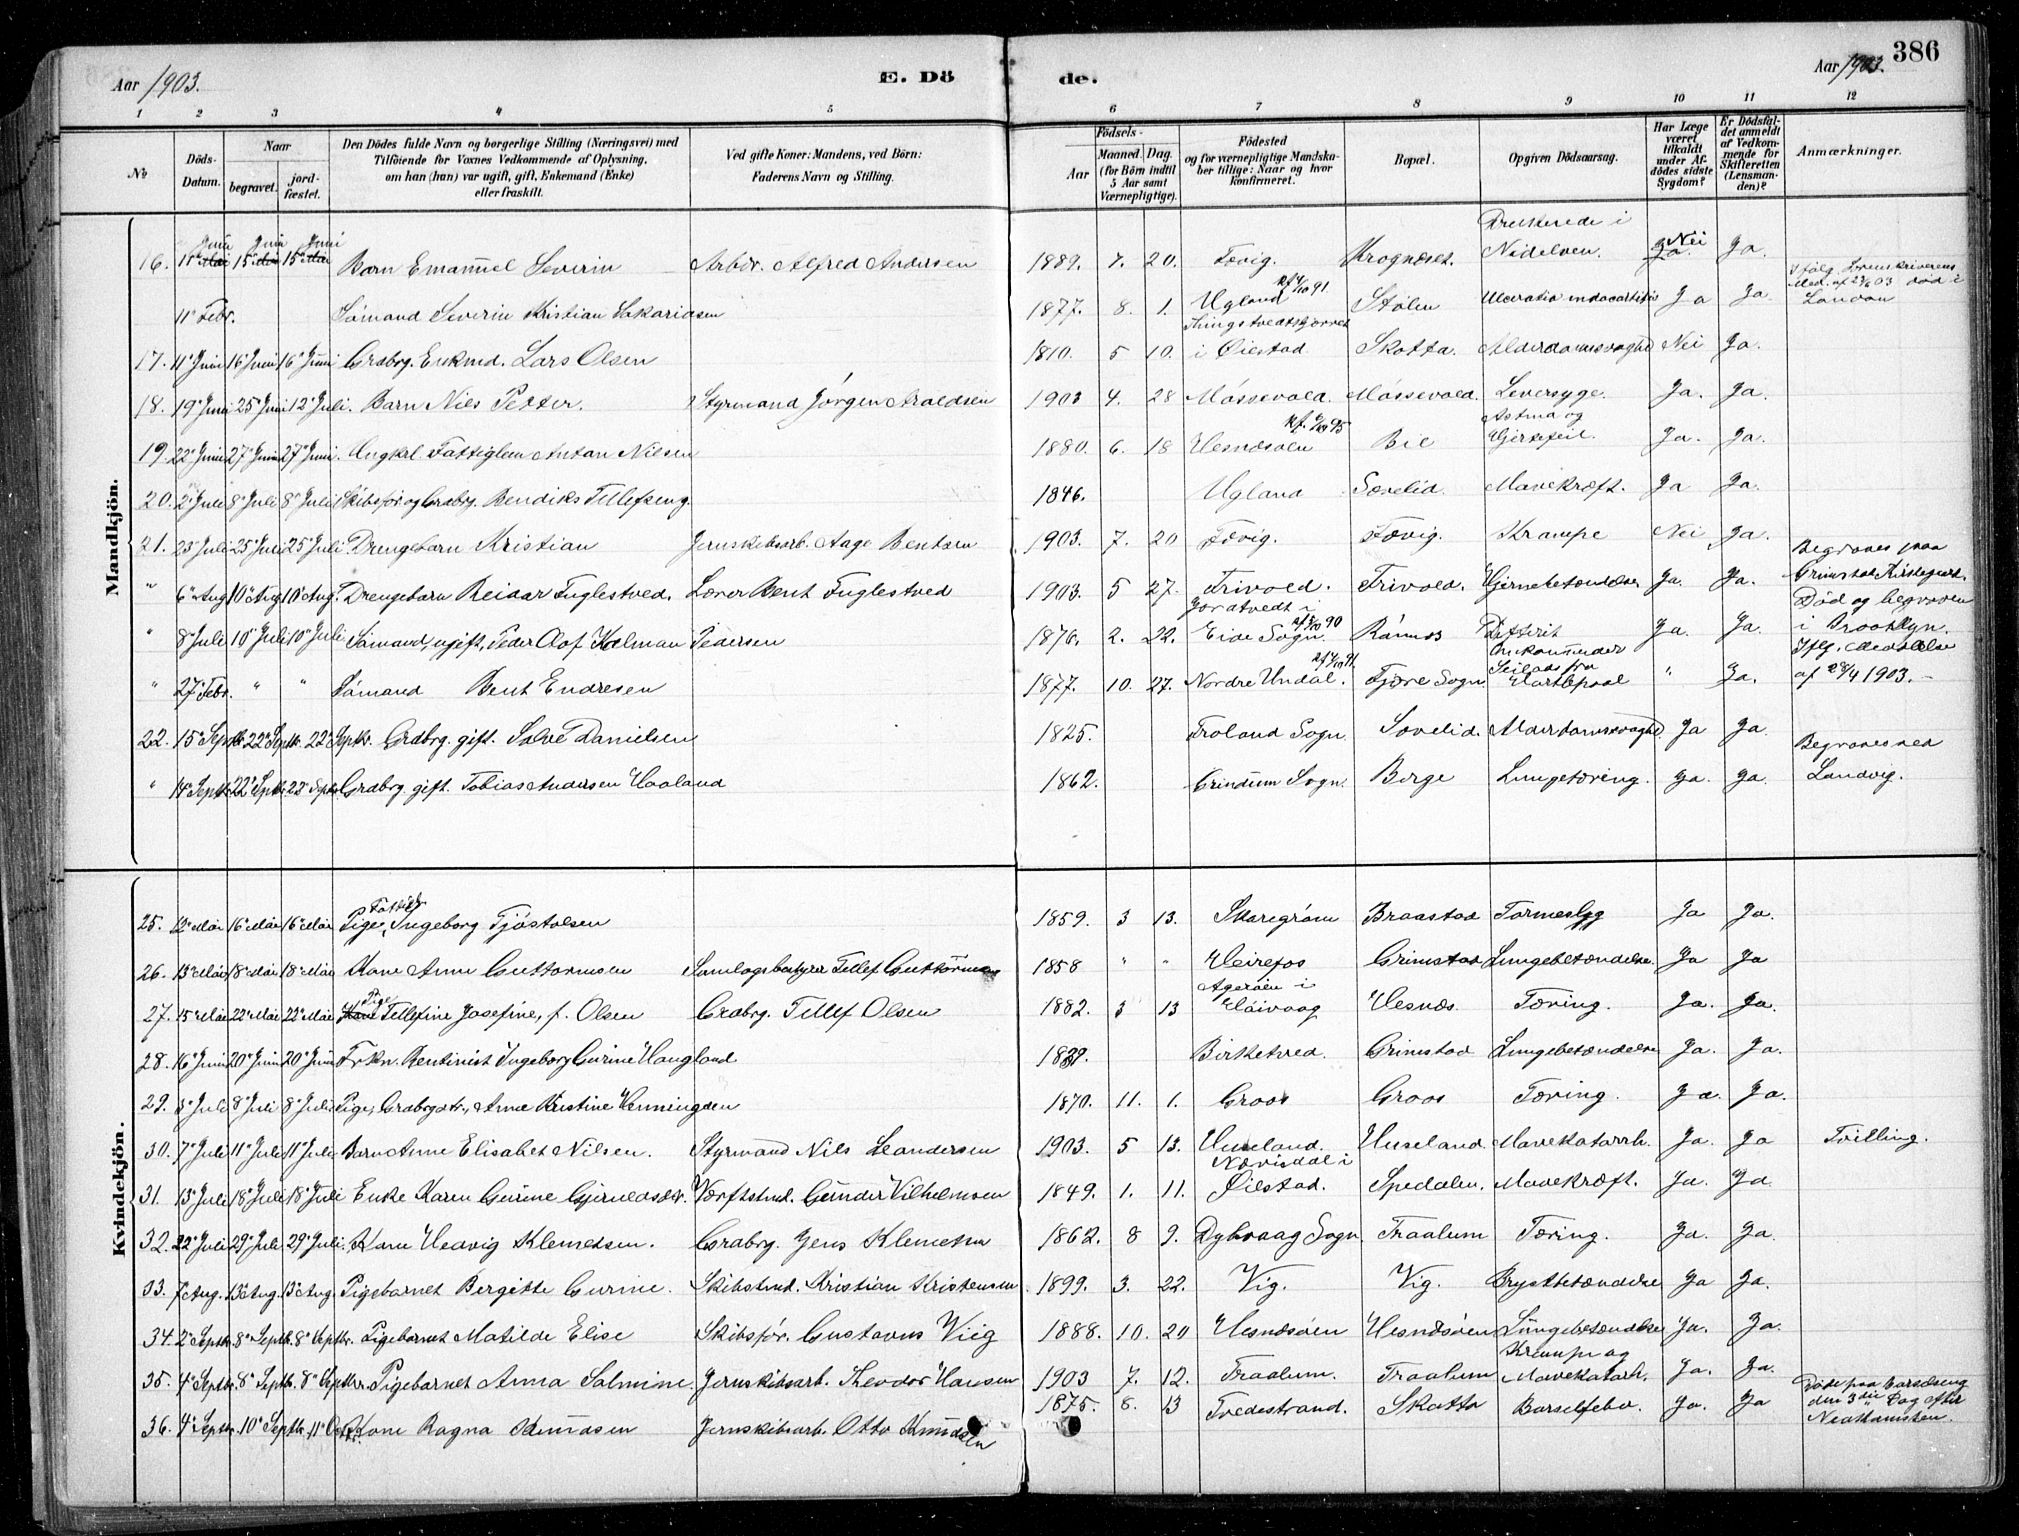 386
Aar 1903.
E. Dö de.
Aar 1903.
1 2 3 4 5 6 7 8 9 10 11 12
No
Döds-Datum.
Naar
begravet.
jord-fæstet.
Den Dödes fulde Navn og borgerlige Stilling (Næringsvei) med
Tilföiende for Voxnes Vedkommende af Oplysning,
om han (hun) var ugift, gift, Enkemand (Enke)
eller fraskilt.
Ved gifte Koner: Mandens, ved Börn:
Faderens Navn og Stilling.
Födsels-
Aar
Maaned. Dag.
(for Börn indtil
5 Aar samt
Værnepligtige).
Födested
og for værnepligtige Mandska-
ber tillige: Naar og hvor
konfirmeret.
Bopæl.
Opgiven Dödsaarsag.
Har Læge
været
tilkaldt
under Af-
dödes sidste
Sygdom?
Er Dödsfal-
det anmeldt
af Vedkom-
mende for
Skifteretten
(Lensman-
den)?
Anmærkninger.
Mandkjön.
16. 11 Juni 15 Juni 15 Juni Barn Emanuel Severin Arbdr. Alfred Andersen 1889. 7. 20. Fevig. Krognæset. Druknede i Nidelven. Nei Ja.
11 Febr. Sømand Severin Kristian Sakariasen 1877. 8. 1. Ugland Stølen Ja Ja. død i London
17. 11 Juni 16 Juni 16 Juni Grdbrg. Enkmd. Lars Olsen 1810. 5 10. i Øiestad Skotta. Alderdomssvaghed Nei Ja.
18. 19 Juni 25 Juni 12 Juli. Barn Nils Petter. Styrmand Jørgen Aroldsen 1903 4. 28 Møssevold. Møssevold. Leversyge. Ja. Ja.
19. 22 Juni 27 Juni 27 Juni. Ungkel. Fattiglem Anton Nilsen 1880. 6. 18 Hesnæsøen Bie Astma og Hjertefeil. Ja. Ja.
20. 2 Juli 8 Juli 8 Juli Skibsfør. og Grdbrg. Bendiks Tellefsen g. 1846. Ugland Sævelid. Mavekræft. Ja Ja.
21. 23 Juli 25 Juli 25 Juli Drengebarn Kristian Jernskibsarb. Aage Bentsen 1903. 7. 20 Fevig. Fævig. Krampe Nei Ja.
" 6 Aug 10 Aug 10 Aug. Drengebarn Reidar Fuglestved. Lærer Bent Fuglestved 1903. 5 27. Frivold. Frivold. Hjernebetændelse Ja. Ja. Begraves paa Grimstad Kirkegaard.
" 8 Juli 10 Juli 10 Juli Sømand, ugift, Peder Olof Kolman Pedersen 1876. 2. 22. Eide Sogn. Rønnes Difterit Ja. Ja. Død og begraven i Brooklyn.
" 27 Febr. " " Sømand Bent Endresen 1877. 10. 27. Nordre Undal. Fjære Sogn. Omkom under Seilads fra Hartlepool " Ja. Iflg. Meddelelse af 28/4 1903.
22. 15 Septb. 22 Septb. 22 Septbr. Grdbrg. gift. Salve Danielsen 1825. Froland Sogn Sævelid. Alderdomssvaghed Ja Ja.
" 14 Septb. 22 Septb. 22 Septb. Grdbrg. gift. Tobias Andersen Haaland 1862. Grindum Sogn. Berge Lungetæring. Ja. Ja. Begraves ved Landvig.
Kvindekjön.
25. 12 Mai 16 Mai 16 Mai Fattig Pige, Ingeborg Tjøstolsen 1859. 3 13. Skaregrøm Braastad Tarmeslyg Ja Ja.
26. 13 Mai 18 Mai 18 Mai Kone Anne Guttormsen Samlagsbestyrer Tellef Guttormsen 1858 " " Heirefos Grimstad Lungebetændelse. Ja Ja
27. 15 Mai 22 Mai 22 Mai Pige Tellefine Josefine, f. Olsen Grdbrg. Tellef Olsen 1882. 3 13 Agerøen i Høivaag Hesnæs. Tæring. Ja. Ja.
28. 16 Juni 20 Juni 20 Juni Frkn. Rentinist Ingeborg Gurine Haugland Birketved. Grimstad Lungebetændelse Ja. Ja.
29. 3 Juli 8 Juli 8 Juli Pige, Grdbrgdtr., Anne Kristine Henningsen 1870. 11. 1. Groos Groos Tæring. Ja. Ja.
30. 7 Juli 11 Juli 11 Juli Barn Anne Elisabet Nilsen. Styrmand Nils Leandersen 1903. 5 13. Huseland. Huseland. Mavekatarrh. Ja. Ja Tvilling.
31. 13 Juli 18 Juli 18 Juli Enke Karen Gurine Gjeruldsdtr. Værftstmd. Gunder Vilhelmsen 1849. 1. 11. Nævisdal i Øiestad. Spedalen. Mavekræft. Ja. Ja.
32. 22 Juli 29 Juli 29 Juli. Kone Hedvig Klemetsen. Grdbrg. Jens Klemetsen 1862. 8 9. Dybvaag Sogn. Fraalum Tæring. Ja. Ja.
33. 7 Aug. 13 Aug. 13 Aug. Pigebarnet Bergitte Gurine. Skibstmd. Kristian Kristensen 1899. 3. 22. Vig. Vig. Brystbetændelse Ja Ja.
34. 2 Septb. 8 Septb. 8 Septbr. Pigebarnet Matilde Elise Skibsfør. Gustavus Vieg 1888. 10. 20 Hesnæsøen Hesnæsøen Lungebetændelse Ja. Ja.
35. 4 Septb. 8 Septb. 8 Septbr. Pigebarnet Anna Salmine. Jernskibsarb. Theodor Hansen 1903 7. 12. Fraalum. Fraalum Krampe og Mavekatarh. Ja. Ja.
36. 4 Septb. 10 Septb. 11 Octbr. Kone Ragna Knudsen Jernskibsarb. Otto Knudsen 1875. 8. 13 Tvedestrand. Skotta Barselfeber. Ja. Ja Døde paa Barselseng den 3die Dag efter Nedkomsten.